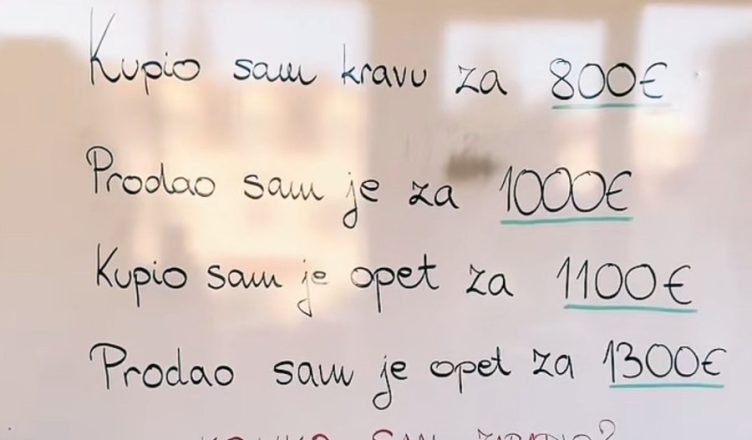 Kupio sam kravu za 800€
Prodao sam je za 1000€
Kupio sam je opet za 1100€
Prodao sam je opet za 1300€